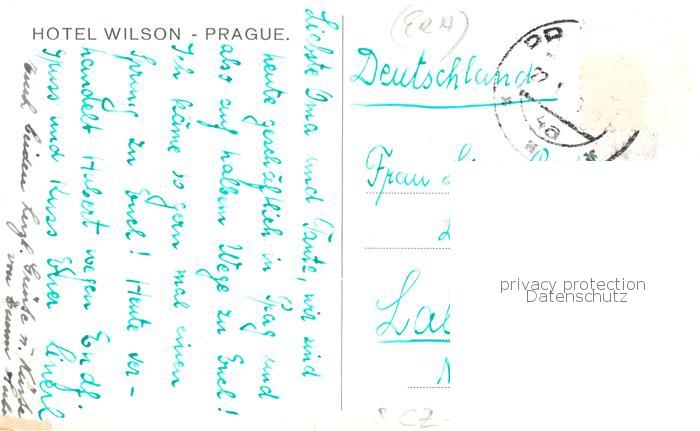 HOTEL WILSON - PRAGUE.
Liebste Oma und Tante, wir sind
heute geschäftlich in Prag und
also auf halbem Wege zu Euch!
Ich käme so gern mal einen
Sprung zu Euch! Heute ver-
handelt Hubert wegen
Gruss und Kuss Eure
Euch beiden herzl. Grüße u. Küsse
von Eurem
Deutschland
Frau
CZ-
privacy protection
Datenschutz